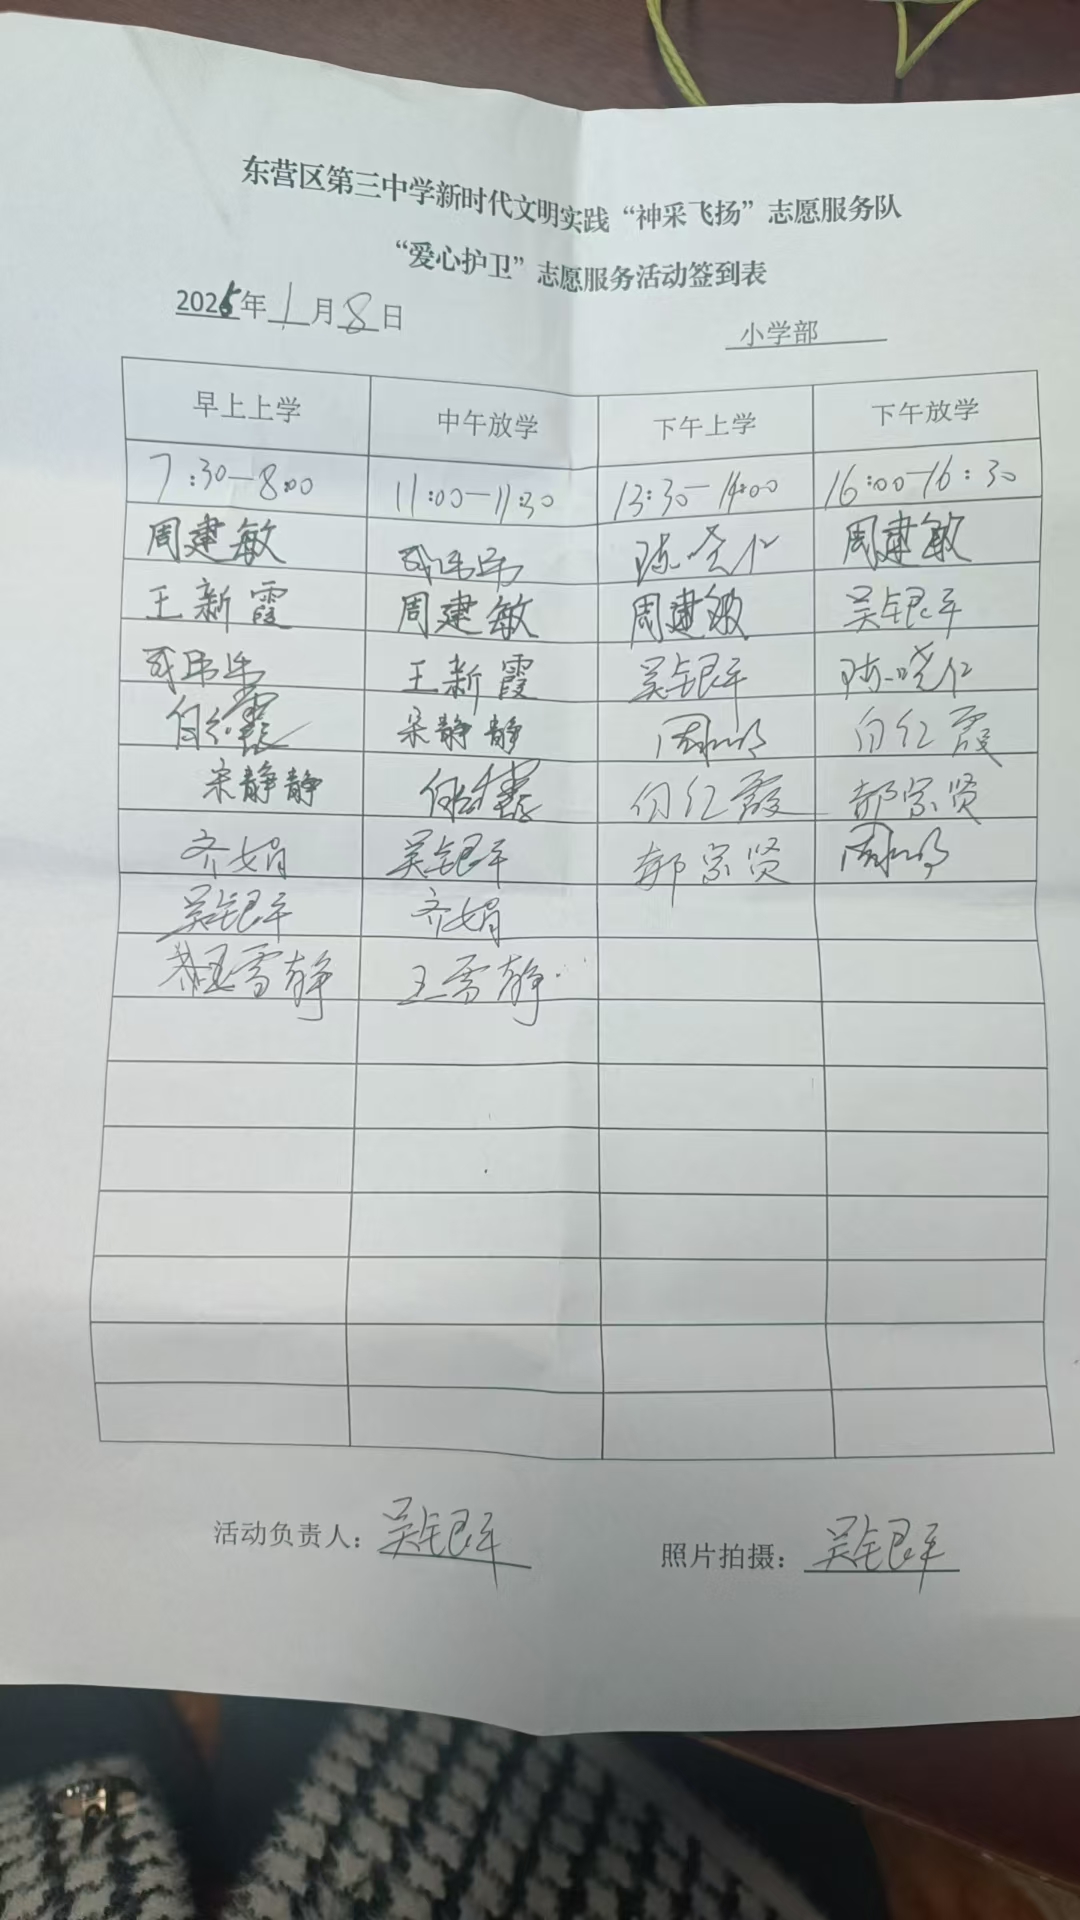 东营区第三中学新时代文明实践“神采飞扬”志愿服务队
“爱心护卫”志愿服务活动签到表
2026年1月8日
小学部
早上上学 中午放学 下午上学 下午放学
7:30—8:00 11:00—11:30 13:30—14:00 16:00—16:30
周建敏 陈晓仁 周建敏
王新霞 周建敏 周建敏 吴银平
王新霞 吴银平 陈晓仁
白红霞 宋静静 白红霞
宋静静 白红霞 白红霞 郝宗贤
齐娟 吴银平 郝宗贤
吴银平 齐娟
王雪静 王雪静
活动负责人：吴银平
照片拍摄：吴银平